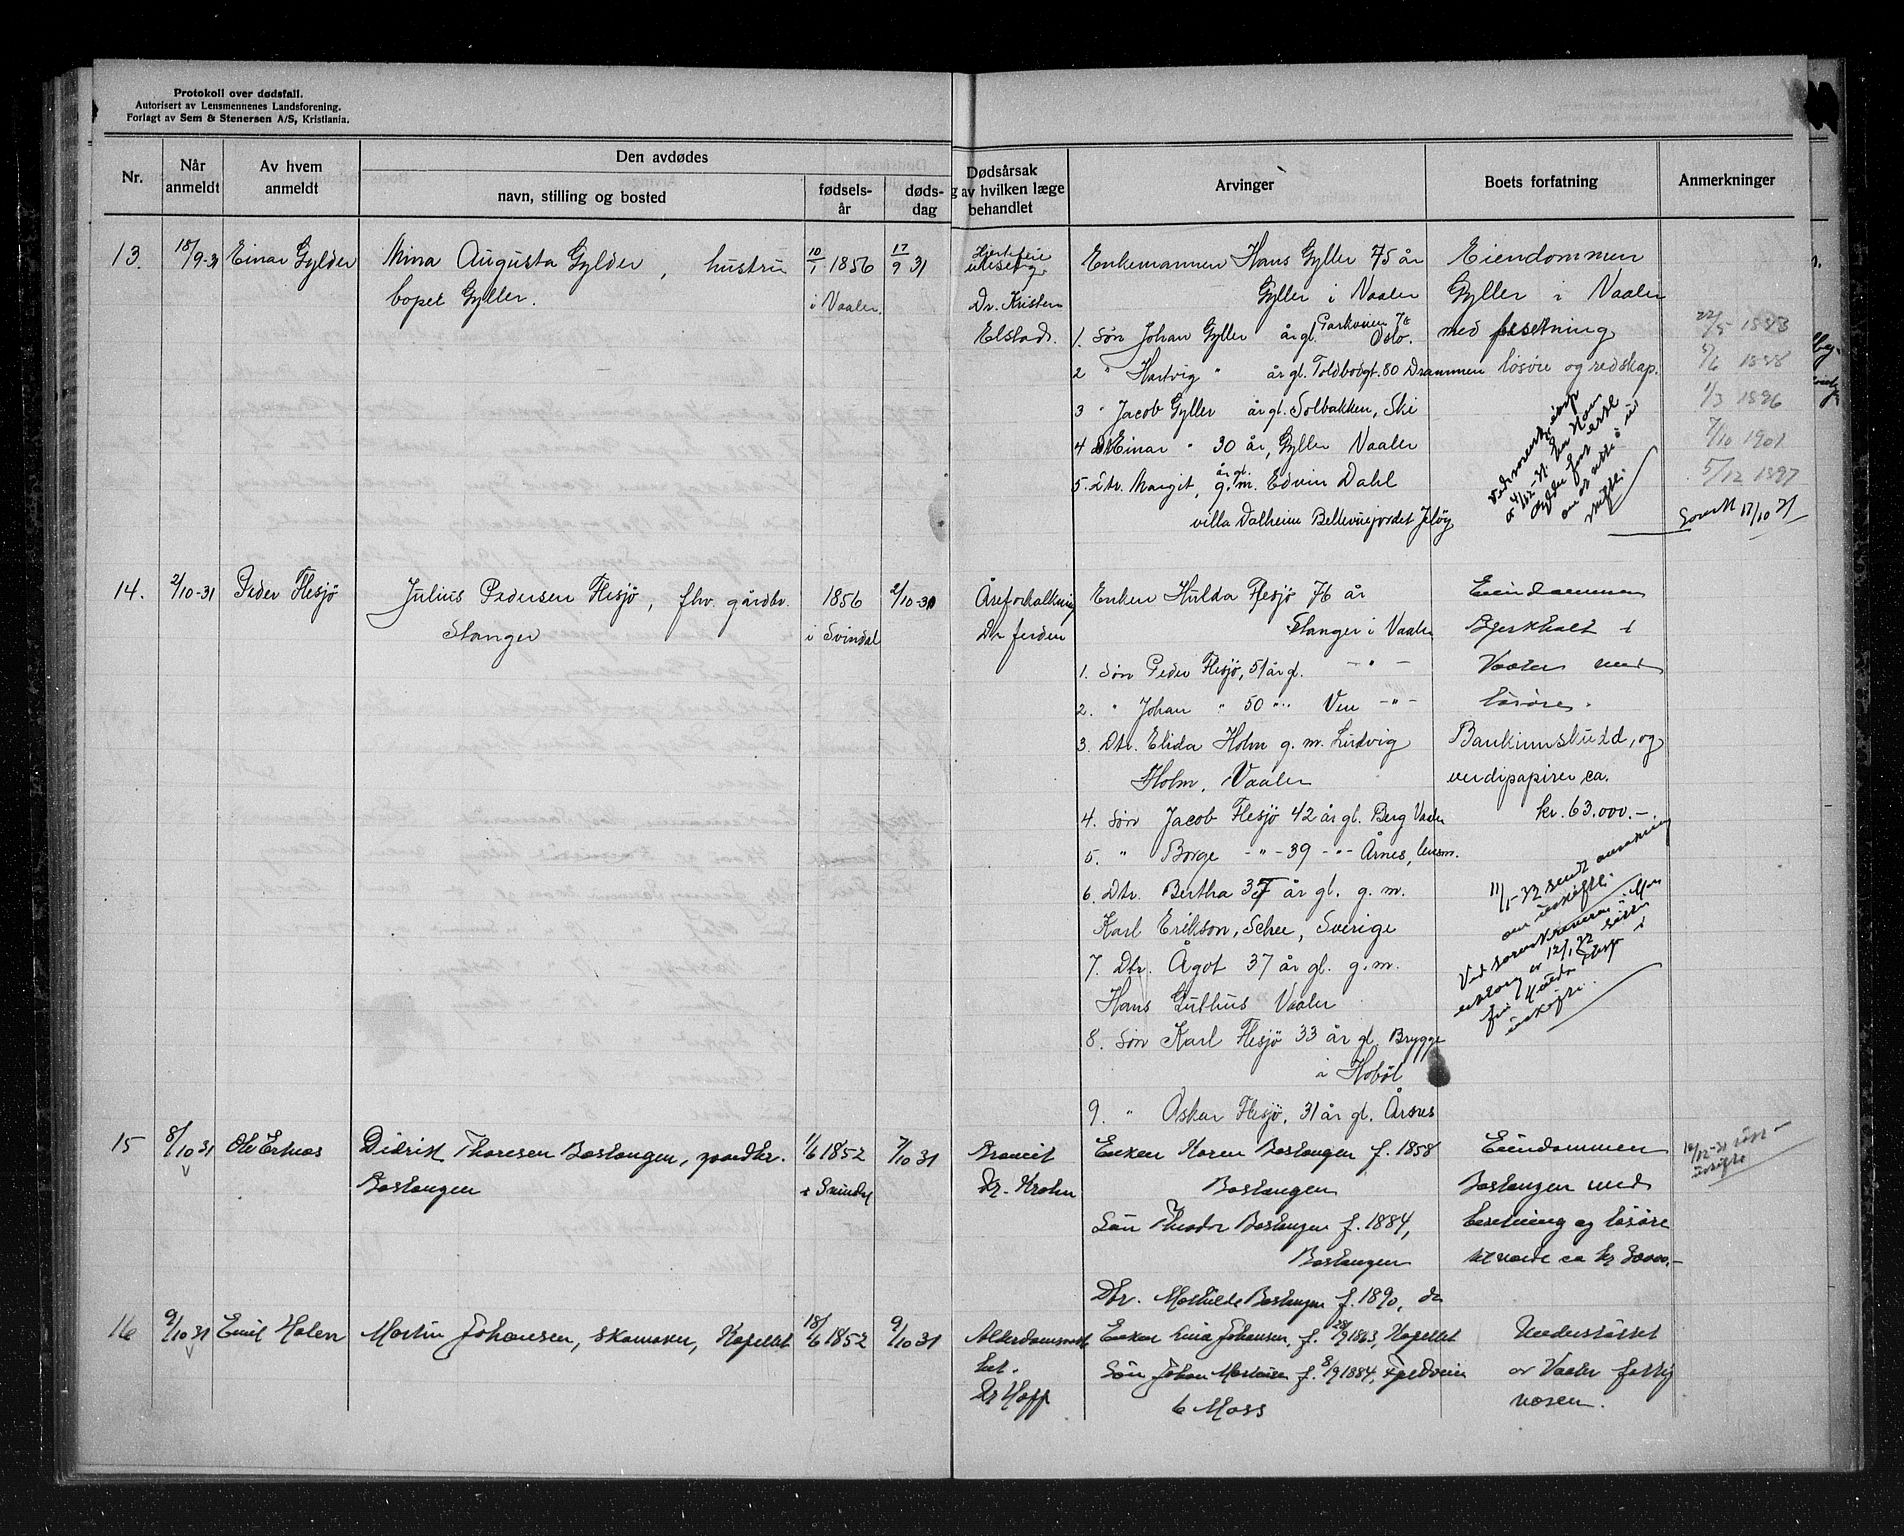 Protokoll over dødsfall.
Autorisert av Lensmennenes Landsforening.
Forlagt av Sem & Stenersen A/S, Kristiania.
Nr.
Når anmeldt
Av hvem anmeldt
Den avdødes
navn, stilling og bosted
fødsels-år
døds-dag
Dødsårsak
og av hvilken læge
behandlet
Arvinger
Boets forfatning
Anmerkninger
13. 18/9-31 Einar Gylder Mina Augusta Gylder, hustru 10/1 1856 17/9 31
bopel Gyller. i Vaaler.
Dr. Kristen
Elstad.
Enkemannen Hans Gyller 75 år
Gyller i Vaaler
1. Søn Johan Gyller år gl. Parkveien Oslo.
2 " Hartvig " år gl. Toldbodgt. 80 Drammen
3 " Jacob Gyller år gl. Solbakken, Ski
4 Einar " 30 år, Gyller Vaaler
5. Dtr. Margit, år gl. g. m. Edvin Dahl
villa Dalheim Bellevuejordet Jeløy
Eiendommen
Gyller i Vaaler
med besetning
løsøre og redskap.
22/5 1883
1/3 1886
7/10 1901
5/12 1897
17/10 31
14. 2/10-31 Peder Flesjø Julius Pedersen Flesjø, fhv. gårdbr. 1856 2/10-31
Stanger i Svindal
Åreforkalkning
Dr Jerdén
Enken Hulda Flesjø 76 år
Stanger i Vaaler
1. Søn Peder Flesjø, 51 år gl. - " -
2. " Johan " 50 " " Ven - " -
3. Dtr. Elida Holm g. m. Ludvig
Holm, Vaaler
4. Søn Jacob Flesjø 42 år gl. Berg Vaaler
5. " Borge - " - 39 - " - Årnes, lensm.
6. Dtr. Bertha 37 år gl. g. m.
Karl Erikson, Schee, Sverige
7. Dtr. Ågot 37 år gl. g. m.
Hans Guthus Vaaler
8. Søn Karl Flesjø 33 år gl. Brygge
i Hobøl
9. " Oskar Flesjø, 31 år gl. Årsnes
Eiendommen
Bjerkholt i
Vaaler med
løsøre.
Bankinnskudd, og
verdipapirer ca.
kr. 63.000.-
11/1-32 sendt ansøkning
om uskifte.
Ved sorenskriveren i Moss
12/1 32
Hulda Flesjø i
uskifte.
15 8/10 31 Ole Esknes Didrik Thoresen Bastangen, gaardbr. 1/6 1852 7/10 31
Bastangen i Svindal
Dr. Krohn
Enken Karen Bastangen f. 1858
Bastangen
Søn Theodor Bastangen f. 1884,
Bastangen
Dtr. Mathilde Bastangen f. 1890, do
Eiendommen
Bastangen med
besetning og løsøre
til værdi ca kr
16/12-31
uskifte
16 9/10 31 Emil Holen Martin Johansen, skomaker, Kapellet 18/6 1852 9/10 31
Alderdomssvakhet.
Dr Hopp
Enken Lina Johansen, f. 28/9 1863, Kapellet
Søn Johan Martinsen f. 8/9 1884,
Moss
Understøttet
av Vaaler fattig
væsen.